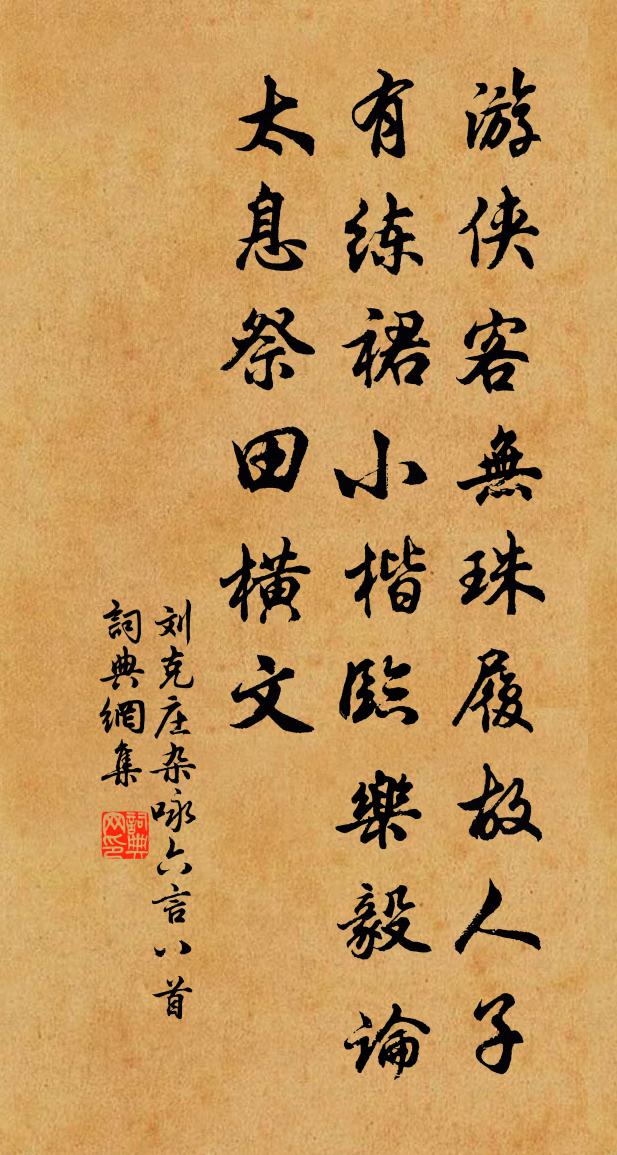 游侠客無珠履故人子
有练裙小楷臨樂毅論
太息祭田横文
刘克庄杂咏六言八首
詞典網集
詞典网印